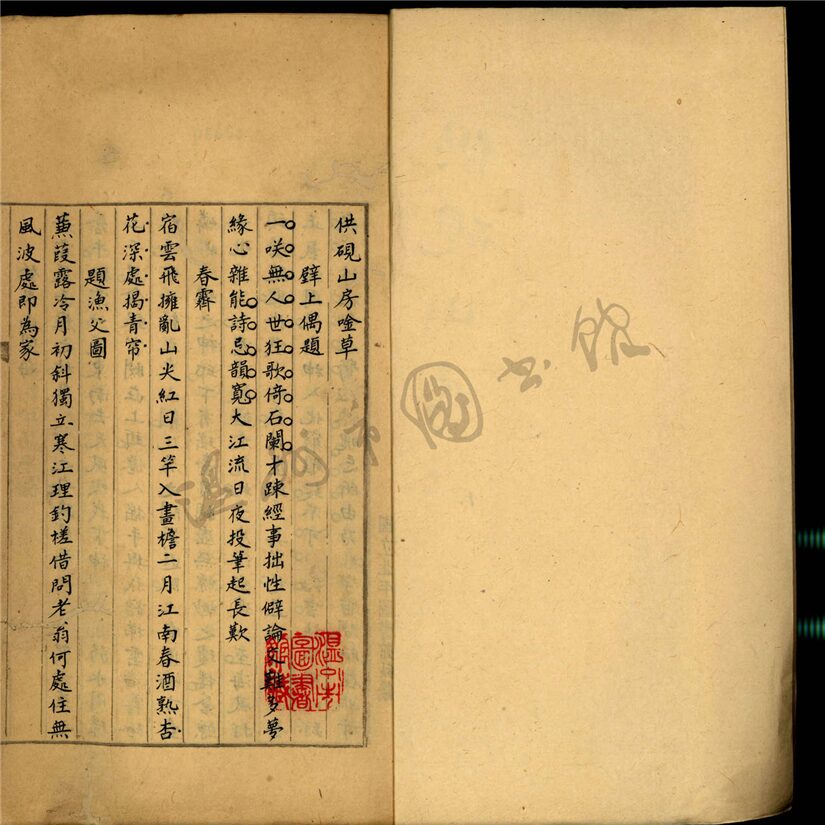 供硯山房唫草
壁上偶題
一咲無人世狂歌倚石闌才疎經事拙性僻論文難多夢
緣心雜能詩忌韻寬大江流日夜投筆起長歎
春霽
宿雲飛擁亂山尖紅日三竿入畫檐二月江南春酒熟杏
花深處揭青帘
題漁父圖
蒹葭露冷月初斜獨立寒江理釣槎借問老翁何處住無
風波處即為家
溫州市圖書館
溫州市圖書館藏